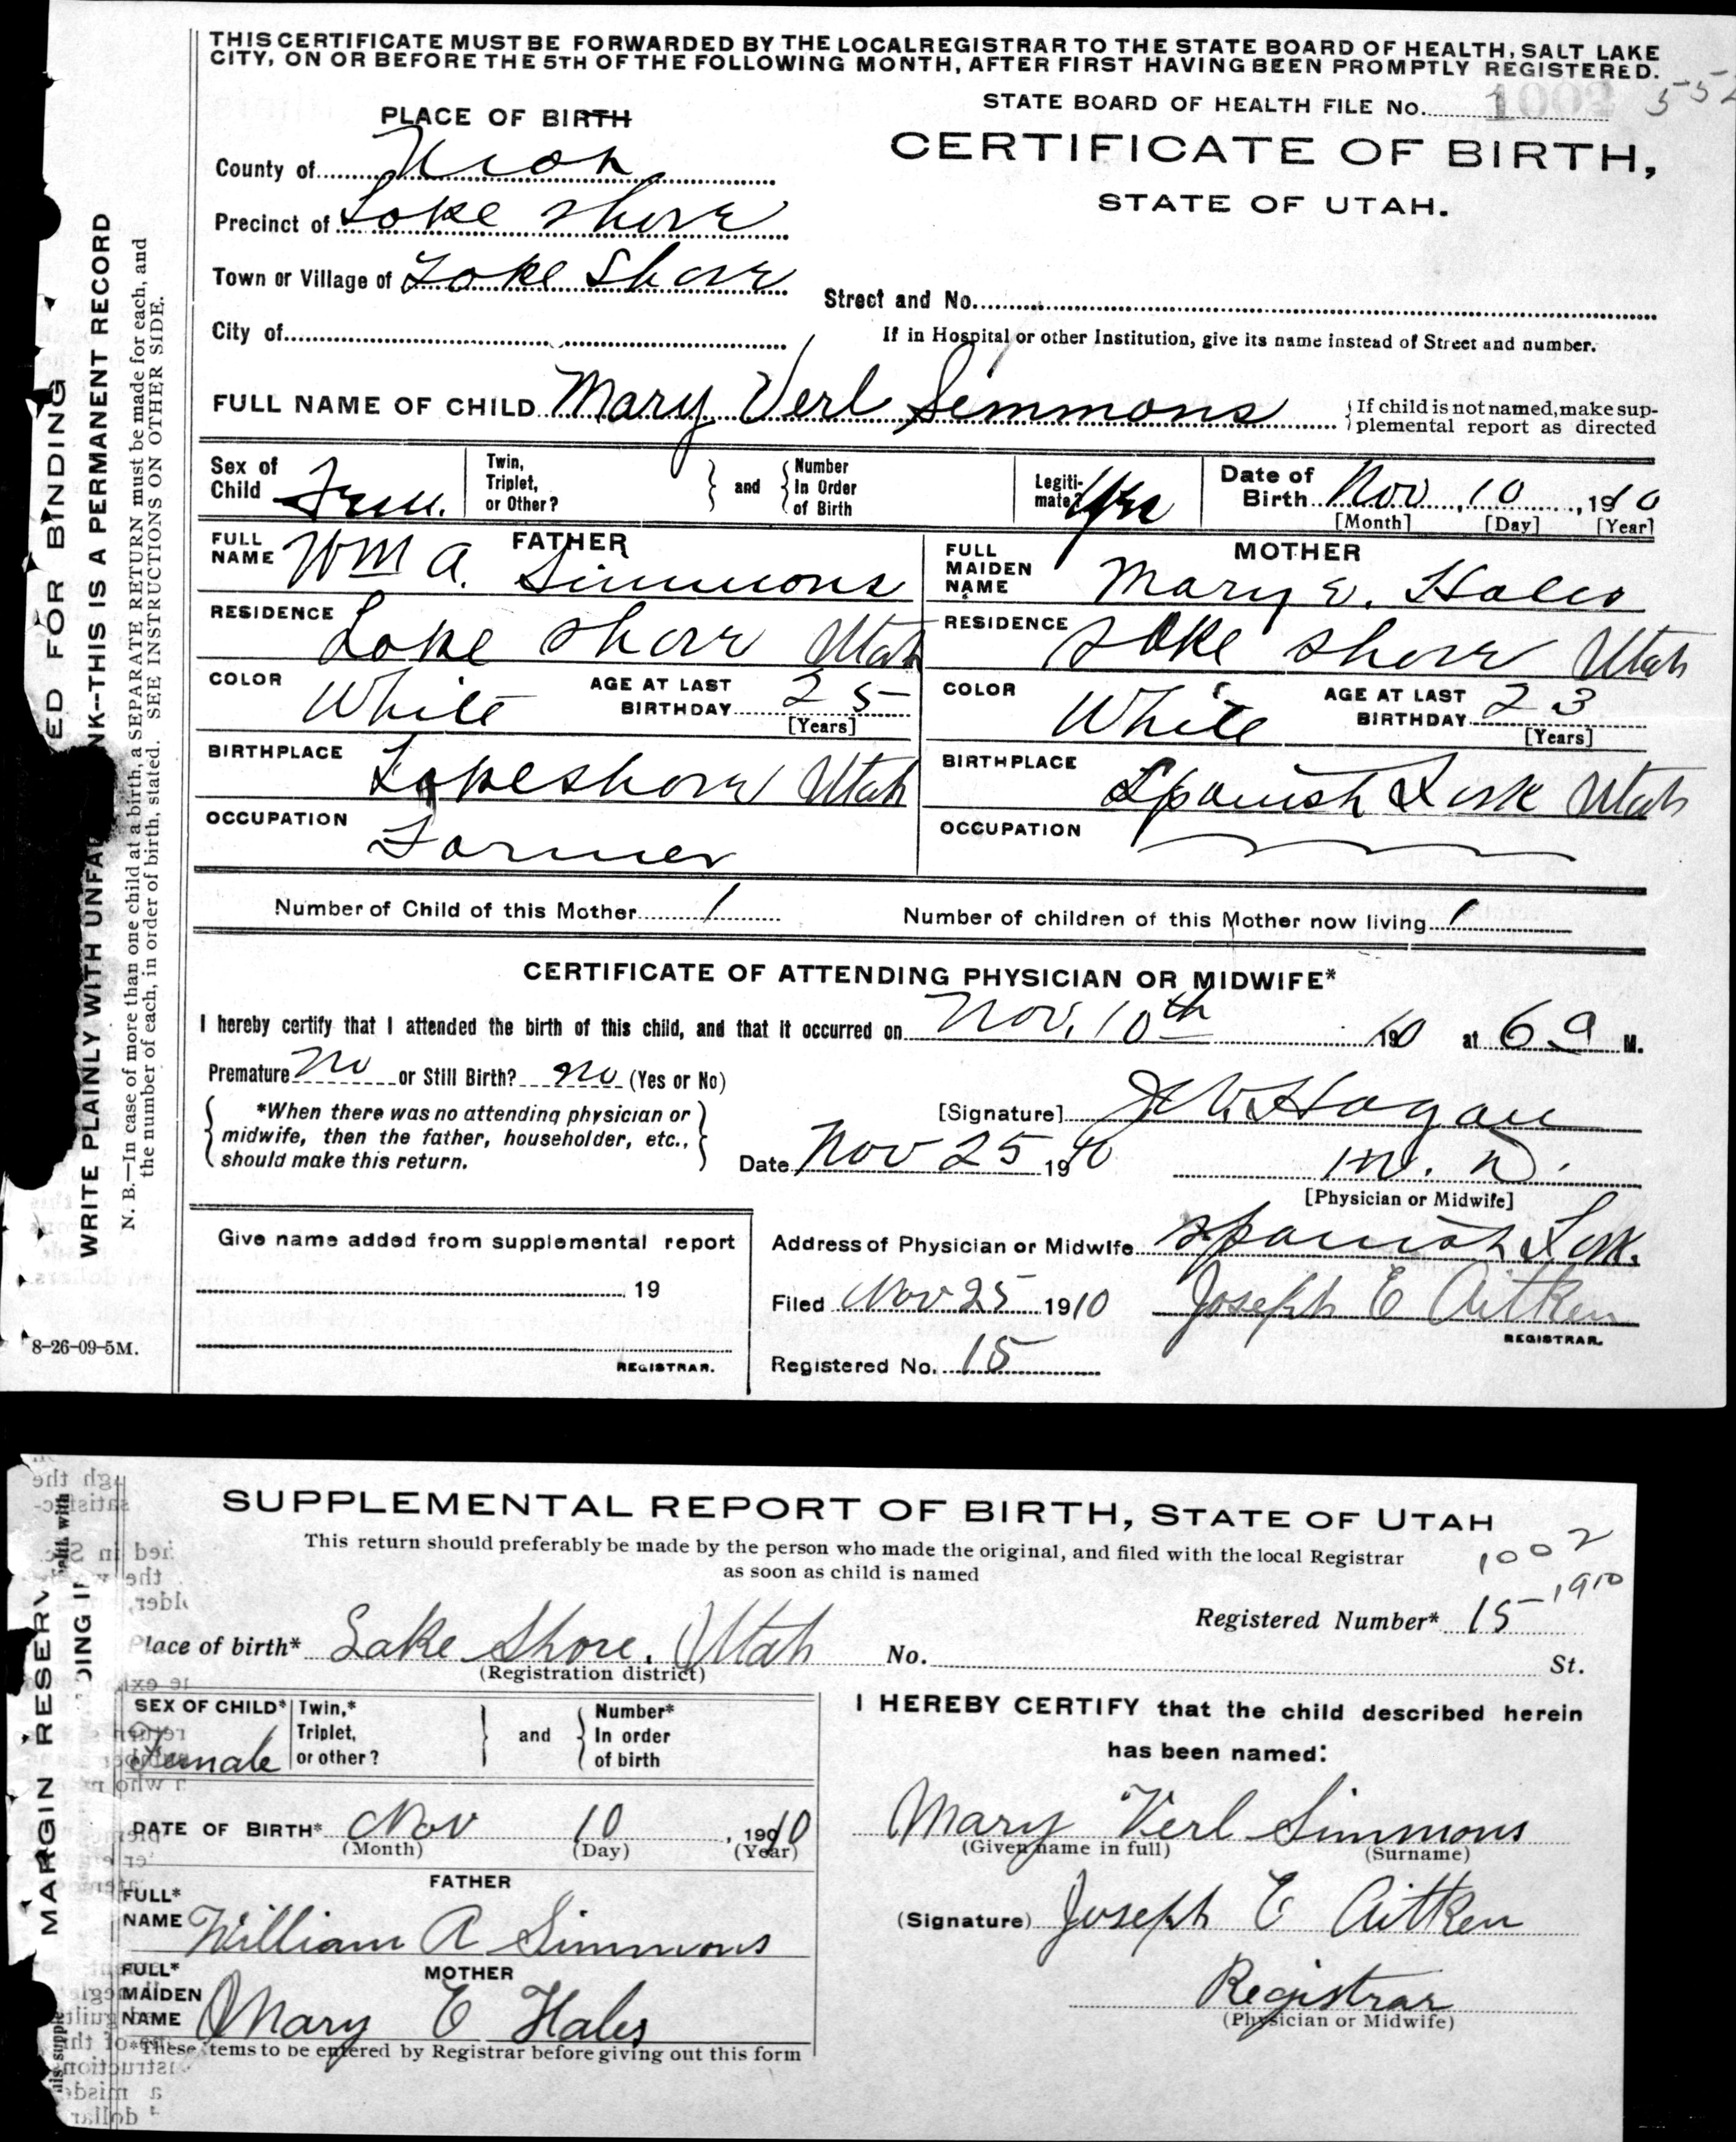 THIS CERTIFICATE MUST BE FORWARDED BY THE LOCAL REGISTRAR TO THE STATE BOARD OF HEALTH, SALT LAKE
CITY, ON OR BEFORE THE 5TH OF THE FOLLOWING MONTH, AFTER FIRST HAVING BEEN PROMPTLY REGISTERED.
STATE BOARD OF HEALTH FILE No. 1002 552
PLACE OF BIRTH
CERTIFICATE OF BIRTH,
STATE OF UTAH.
County of Utah
Precinct of Lake Shore
Town or Village of Lake Shore
Street and No.
City of
If in Hospital or other Institution, give its name instead of Street and number.
FULL NAME OF CHILD Mary Verl Simmons
If child is not named, make sup-
plemental report as directed
Sex of
Child Fem.
Twin,
Triplet,
or Other?
and
Number
In Order
of Birth
Legiti-
mate? Yes
Date of
Birth Nov 10, 1910
[Month] [Day] [Year]
FATHER
FULL
NAME Wm A. Simmons
MOTHER
FULL
MAIDEN
NAME Mary E. Hales
RESIDENCE Lake Shore Utah
RESIDENCE Lake Shore Utah
COLOR White
AGE AT LAST
BIRTHDAY 25
[Years]
COLOR White
AGE AT LAST
BIRTHDAY 23
[Years]
BIRTHPLACE Lakeshore Utah
BIRTHPLACE Spanish Fork Utah
OCCUPATION Farmer
OCCUPATION
Number of Child of this Mother 1
Number of children of this Mother now living 1
CERTIFICATE OF ATTENDING PHYSICIAN OR MIDWIFE*
I hereby certify that I attended the birth of this child, and that it occurred on Nov. 10th 1910 at 6 a M.
Premature No or Still Birth? No (Yes or No)
*When there was no attending physician or
midwife, then the father, householder, etc.,
should make this return.
[Signature] Hagan
Date Nov 25 1910
M. D.
[Physician or Midwife]
Give name added from supplemental report
19
REGISTRAR.
Address of Physician or Midwife Spanish Fork.
Filed Nov 25 1910 Joseph E Aitken
REGISTRAR.
Registered No. 15
8-26-09-5M.
ED FOR BINDING
WRITE PLAINLY WITH UNFA NK--THIS IS A PERMANENT RECORD
N. B.—In case of more than one child at a birth, a SEPARATE RETURN must be made for each, and
the number of each, in order of birth, stated. SEE INSTRUCTIONS ON OTHER SIDE.
SUPPLEMENTAL REPORT OF BIRTH, STATE OF UTAH
This return should preferably be made by the person who made the original, and filed with the local Registrar
as soon as child is named
1002
Registered Number* 15 1910
Place of birth* Lake Shore, Utah No. St.
(Registration district)
SEX OF CHILD*
Female
Twin,*
Triplet,
or other?
and
Number*
In order
of birth
DATE OF BIRTH* Nov 10, 1910
(Month) (Day) (Year)
FATHER
FULL*
NAME William A Simmons
MOTHER
FULL*
MAIDEN
NAME Mary E Hales
*These items to be entered by Registrar before giving out this form
I HEREBY CERTIFY that the child described herein
has been named:
Mary Verl Simmons
(Given name in full) (Surname)
(Signature) Joseph E Aitken
Registrar
(Physician or Midwife)
MARGIN RESERV
DING